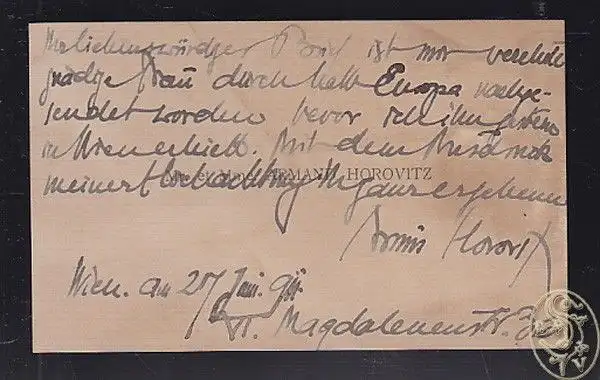 Ihr liebenswürdger Brief ist mir verehrte
gnädige Frau durch halb Europa nachge-
sendet worden bevor ich ihn
in Wien erhielt. Mit dem Ausdruck
meiner Hochachtung Ihr ganz ergebener
Mr. et Mme. ARMAND HOROVITZ
Armin Horovitz
Wien. am 20/ Juni
VI. Magdalenenstr.